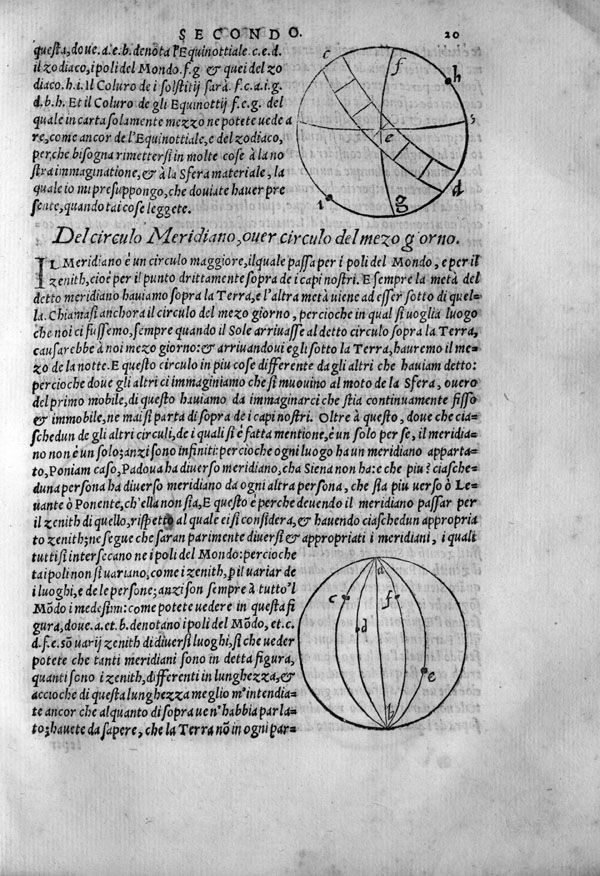 SECONDO. 20
questa, doue .a.e.b. denōta l'Equinottiale .c.e.d.
il zodiaco, i poli del Mondo .f.g & quei del zo
diaco .h.i. Il Coluro de i solstitij sarà .f.c.a.i.g.
d.b.h. Et il Coluro de gli Equinottij .f.e.g. del
quale in carta solamente mezzo ne potete uede a
re, come ancor de l'Equinottiale, e del zodiaco,
perche bisogna rimettersi in molte cose à la no
stra immaginatione, & à la Sfera materiale, la
quale io mi presuppongo, che douiate hauer pre
sente, quando tai cose leggete.
c
f
h
s
e
d
i
g
Del circulo Meridiano, ouer circulo del mezo giorno.
IL Meridiano è un circulo maggiore, il quale passa per i poli del Mondo, e per il
zenith, cioè per il punto drittamente sopra de i capi nostri. E sempre la metà del
detto meridiano hauiamo sopra la Terra, e l'altra metà uiene ad esser sotto di quel=
la. Chiamasi anchora il circulo del mezo giorno, percioche in qual si uoglia luogo
che noi ci fussemo, sempre quando il Sole arriuasse al detto circulo sopra la Terra,
causarebbe à noi mezo giorno: & arriuandoui egli sotto la Terra, hauremo il me=
zo de la notte. E questo circulo in piu cose differente da gli altri che hauiam detto:
percioche doue gli altri ci immaginiamo che si muouino al moto de la Sfera, ouero
del primo mobile, di questo hauiamo da imaginarci che stia continuamente fisso
& immobile, ne mai si parta di sopra de i capi nostri. Oltre à questo, doue che cia=
schedun de gli altri circuli, de i quali si è fatta mentione, è un solo per se, il meridia=
no non è un solo; anzi sono infiniti: percioche ogni luogo ha un meridiano apparta=
to, Poniam caso, Padoua ha diuerso meridiano, cha Siena non ha: e che piu? ciasche=
duna persona ha diuerso meridiano da ogni altra persona, che stia piu uerso ò Le=
uante ò Ponente, ch'ella non stia, E questo è perche deuendo il meridiano passar per
il zenith di quello, rispetto al quale ei si considera, & hauendo ciaschedun appropria
to zenith; ne segue che saran parimente diuersi & appropriati i meridiani, i quali
tutti si intersecano ne i poli del Mondo: percioche
tai poli non si uariano, come i zenith, p il uariar de
i luoghi, e de le persone; anzi son sempre à tutto 'l
Mōdo i medesimi: come potete uedere in questa fi
gura, doue .a. et .b. denotano i poli del Mōdo, et .c.
d.f.e. sō uarij zenith di diuersi luoghi, si che ueder
potete che tanti meridiani sono in detta figura,
quanti sono i zenith, differenti in lunghezza, &
accioche di questa lunghezza meglio m'intendia=
te ancor che alquanto di sopra ue n'habbia par la=
to; hauete da sapere, che la Terra nō in ogni par=
a
c
f
d
e
b